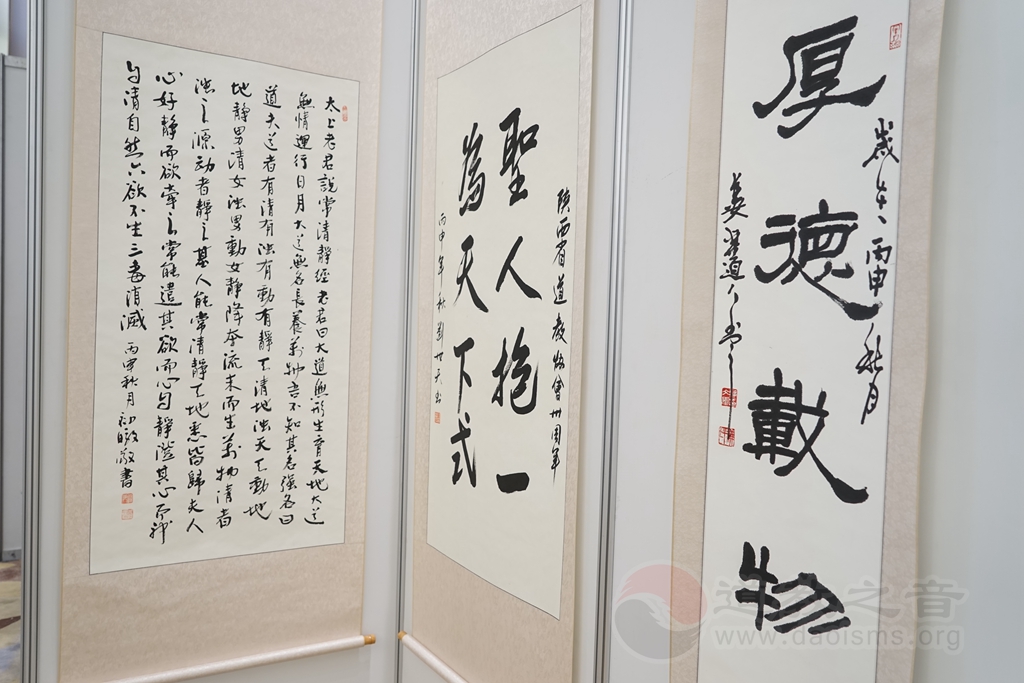 太上老君說常清靜經老君曰大道無形生育天地大道
無情運行日月大道無名長養萬物吾不知其名強名曰
道夫道者有清有濁有動有靜天清地濁天動地
地靜男清女濁男動女靜降本流末而生萬物清者
濁之源動者靜之基人能常清靜天地悉皆歸夫人
心好靜而欲牽之常能遣其欲而心自靜澄其心而神
自清自然六欲不生三毒消滅 丙申秋月 敬書
陝西省道教協會卅周年
聖人抱一
為天下式
丙申年秋劉世天書
歲在丙申秋月
厚德載物
道人書
道教之音
www.daoisms.org